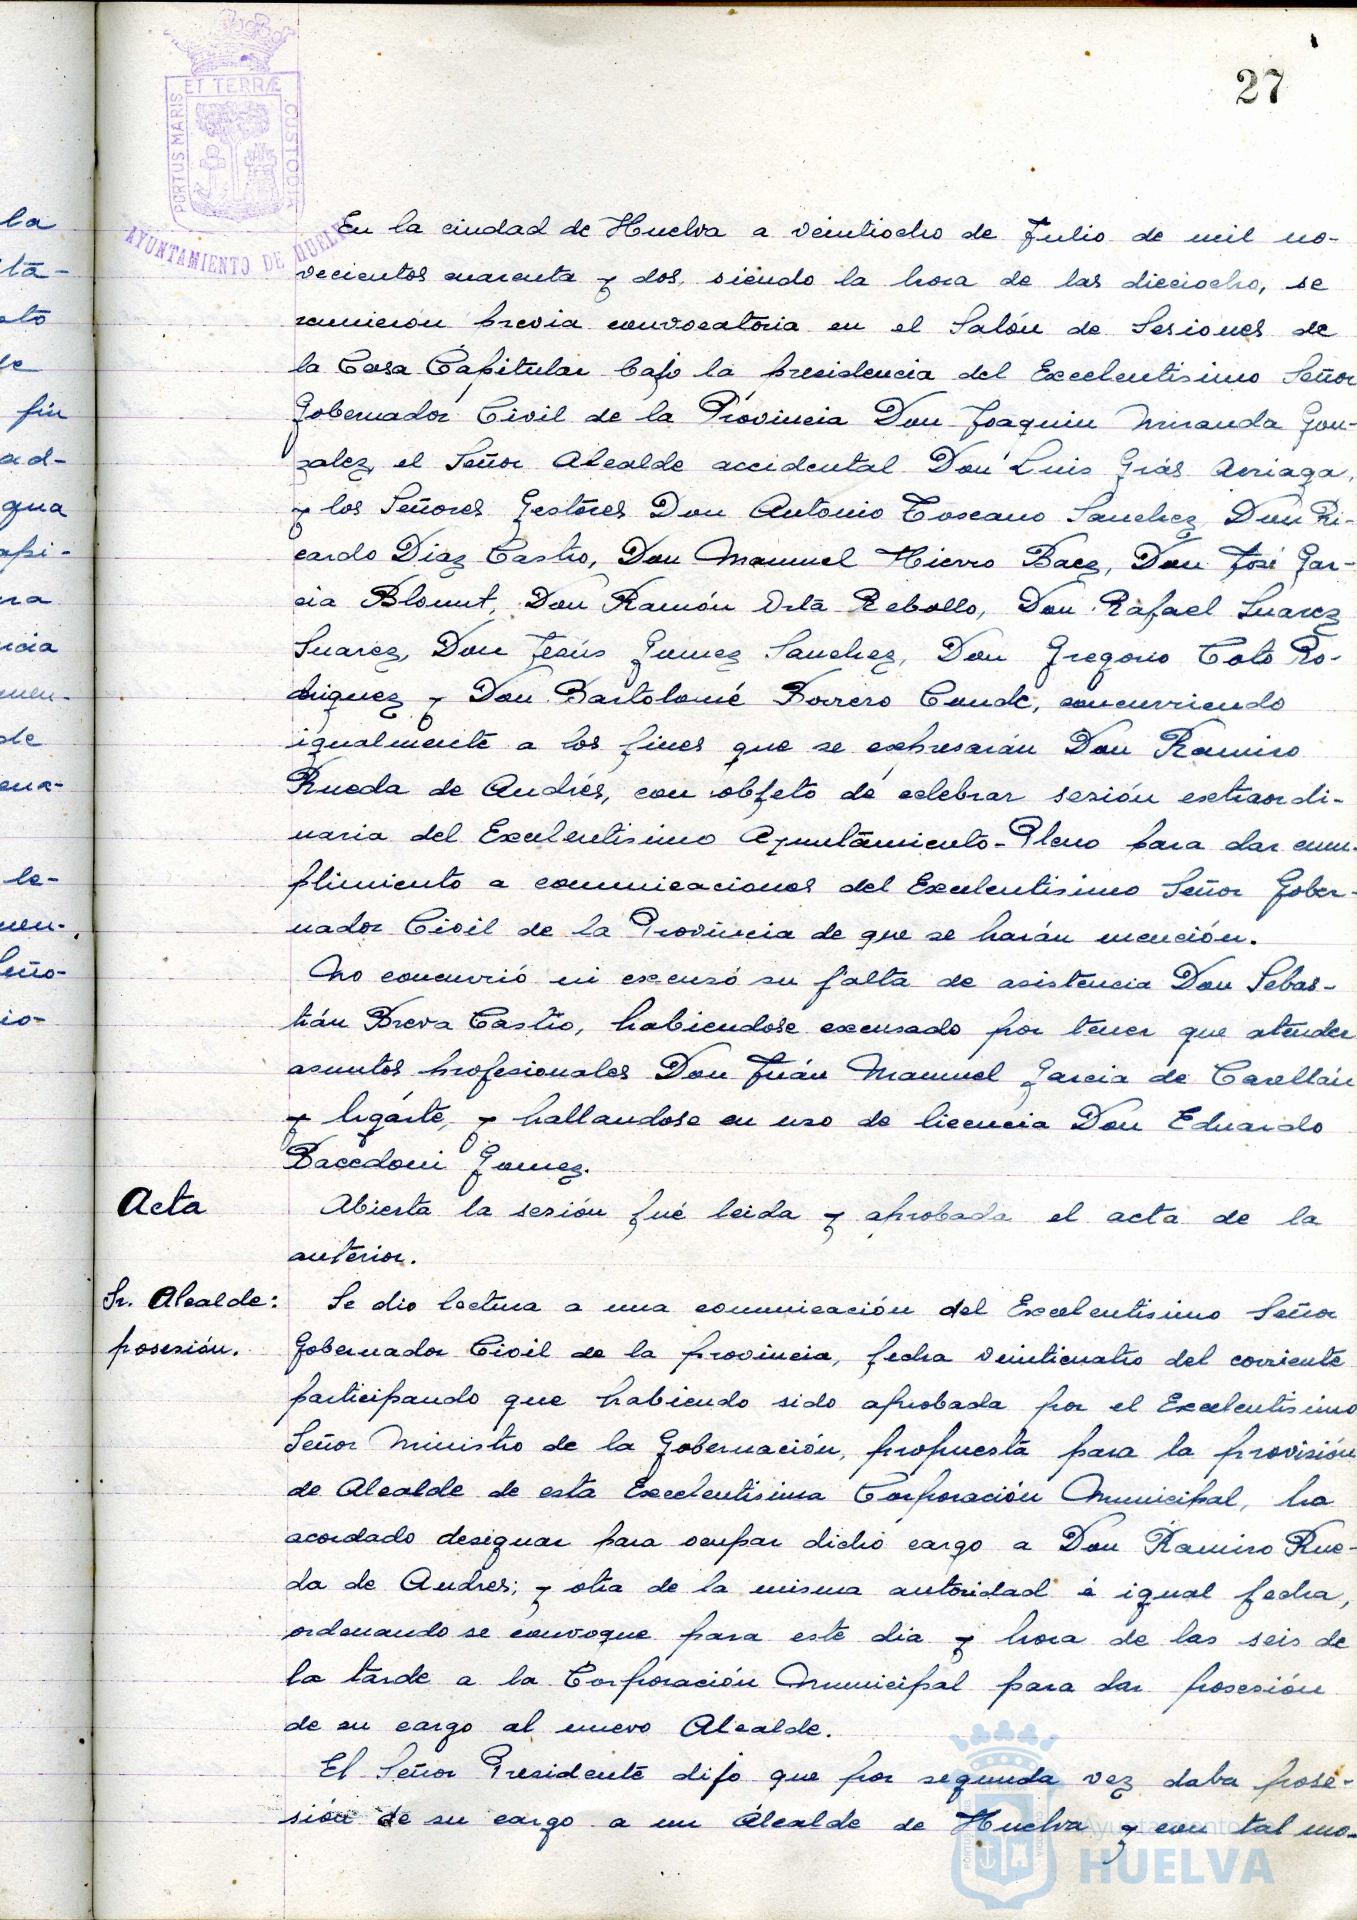 27
ET TERRÆ
PORTUS MARIS
CUSTODIA
AYUNTAMIENTO DE HUELVA
En la ciudad de Huelva a veintiocho de Julio de mil no-
vecientos cuarenta y dos, siendo la hora de las dieciocho, se
reunieron previa convocatoria en el Salón de Sesiones de
la Casa Capitular bajo la presidencia del Excelentisimo Señor
Gobernador Civil de la Provincia Don Joaquin Miranda Gon-
zalez, el Señor Alcalde accidental Don Luis Grás Arriaga,
y los Señores Gestores Don Antonio Toscano Sanchez, Don Ri-
cardo Diaz Castro, Don Manuel Hierro Baez, Don José Gar-
cia Blount, Don Ramón Orta Rebollo, Don Rafael Suarez
Suarez, Don Jesús Gomez Sanchez, Don Gregorio Coto Ro-
driguez y Don Bartolomé Borrero Conde, concurriendo
igualmente a los fines que se expresarán Don Ramiro
Rueda de Andrés, con objeto de celebrar sesión extraordi-
naria del Excelentisimo Ayuntamiento-Pleno para dar cum-
plimiento a comunicaciones del Excelentisimo Señor Gober-
nador Civil de la Provincia de que se harán mención.
No concurrió ni excusó su falta de asistencia Don Sebas-
tián Breva Castro, habiendose excusado por tener que atender
asuntos profesionales Don Juán Manuel Garcia de
y y hallandose en uso de licencia Don Eduardo
Gomez.
Acta
Abierta la sesión fué leida y aprobada el acta de la
anterior.
Sr. Alcalde:
posesión.
Se dio lectura a una comunicación del Excelentisimo Señor
Gobernador Civil de la provincia, fecha veinticuatro del corriente
participando que habiendo sido aprobada por el Excelentisimo
Señor Ministro de la Gobernación, propuesta para la provisión
de Alcalde de esta Excelentisima Corporación Municipal, ha
acordado designar para ocupar dicho cargo a Don Ramiro Rue-
da de Andres; y otra de la misma autoridad é igual fecha,
ordenando se convoque para este dia y hora de las seis de
la tarde a la Corporación Municipal para dar posesión
de su cargo al nuevo Alcalde.
El Señor Presidente dijo que por segunda vez daba pose-
sión de su cargo a un Alcalde de Huelva y con tal mo-
Ayuntamiento
HUELVA